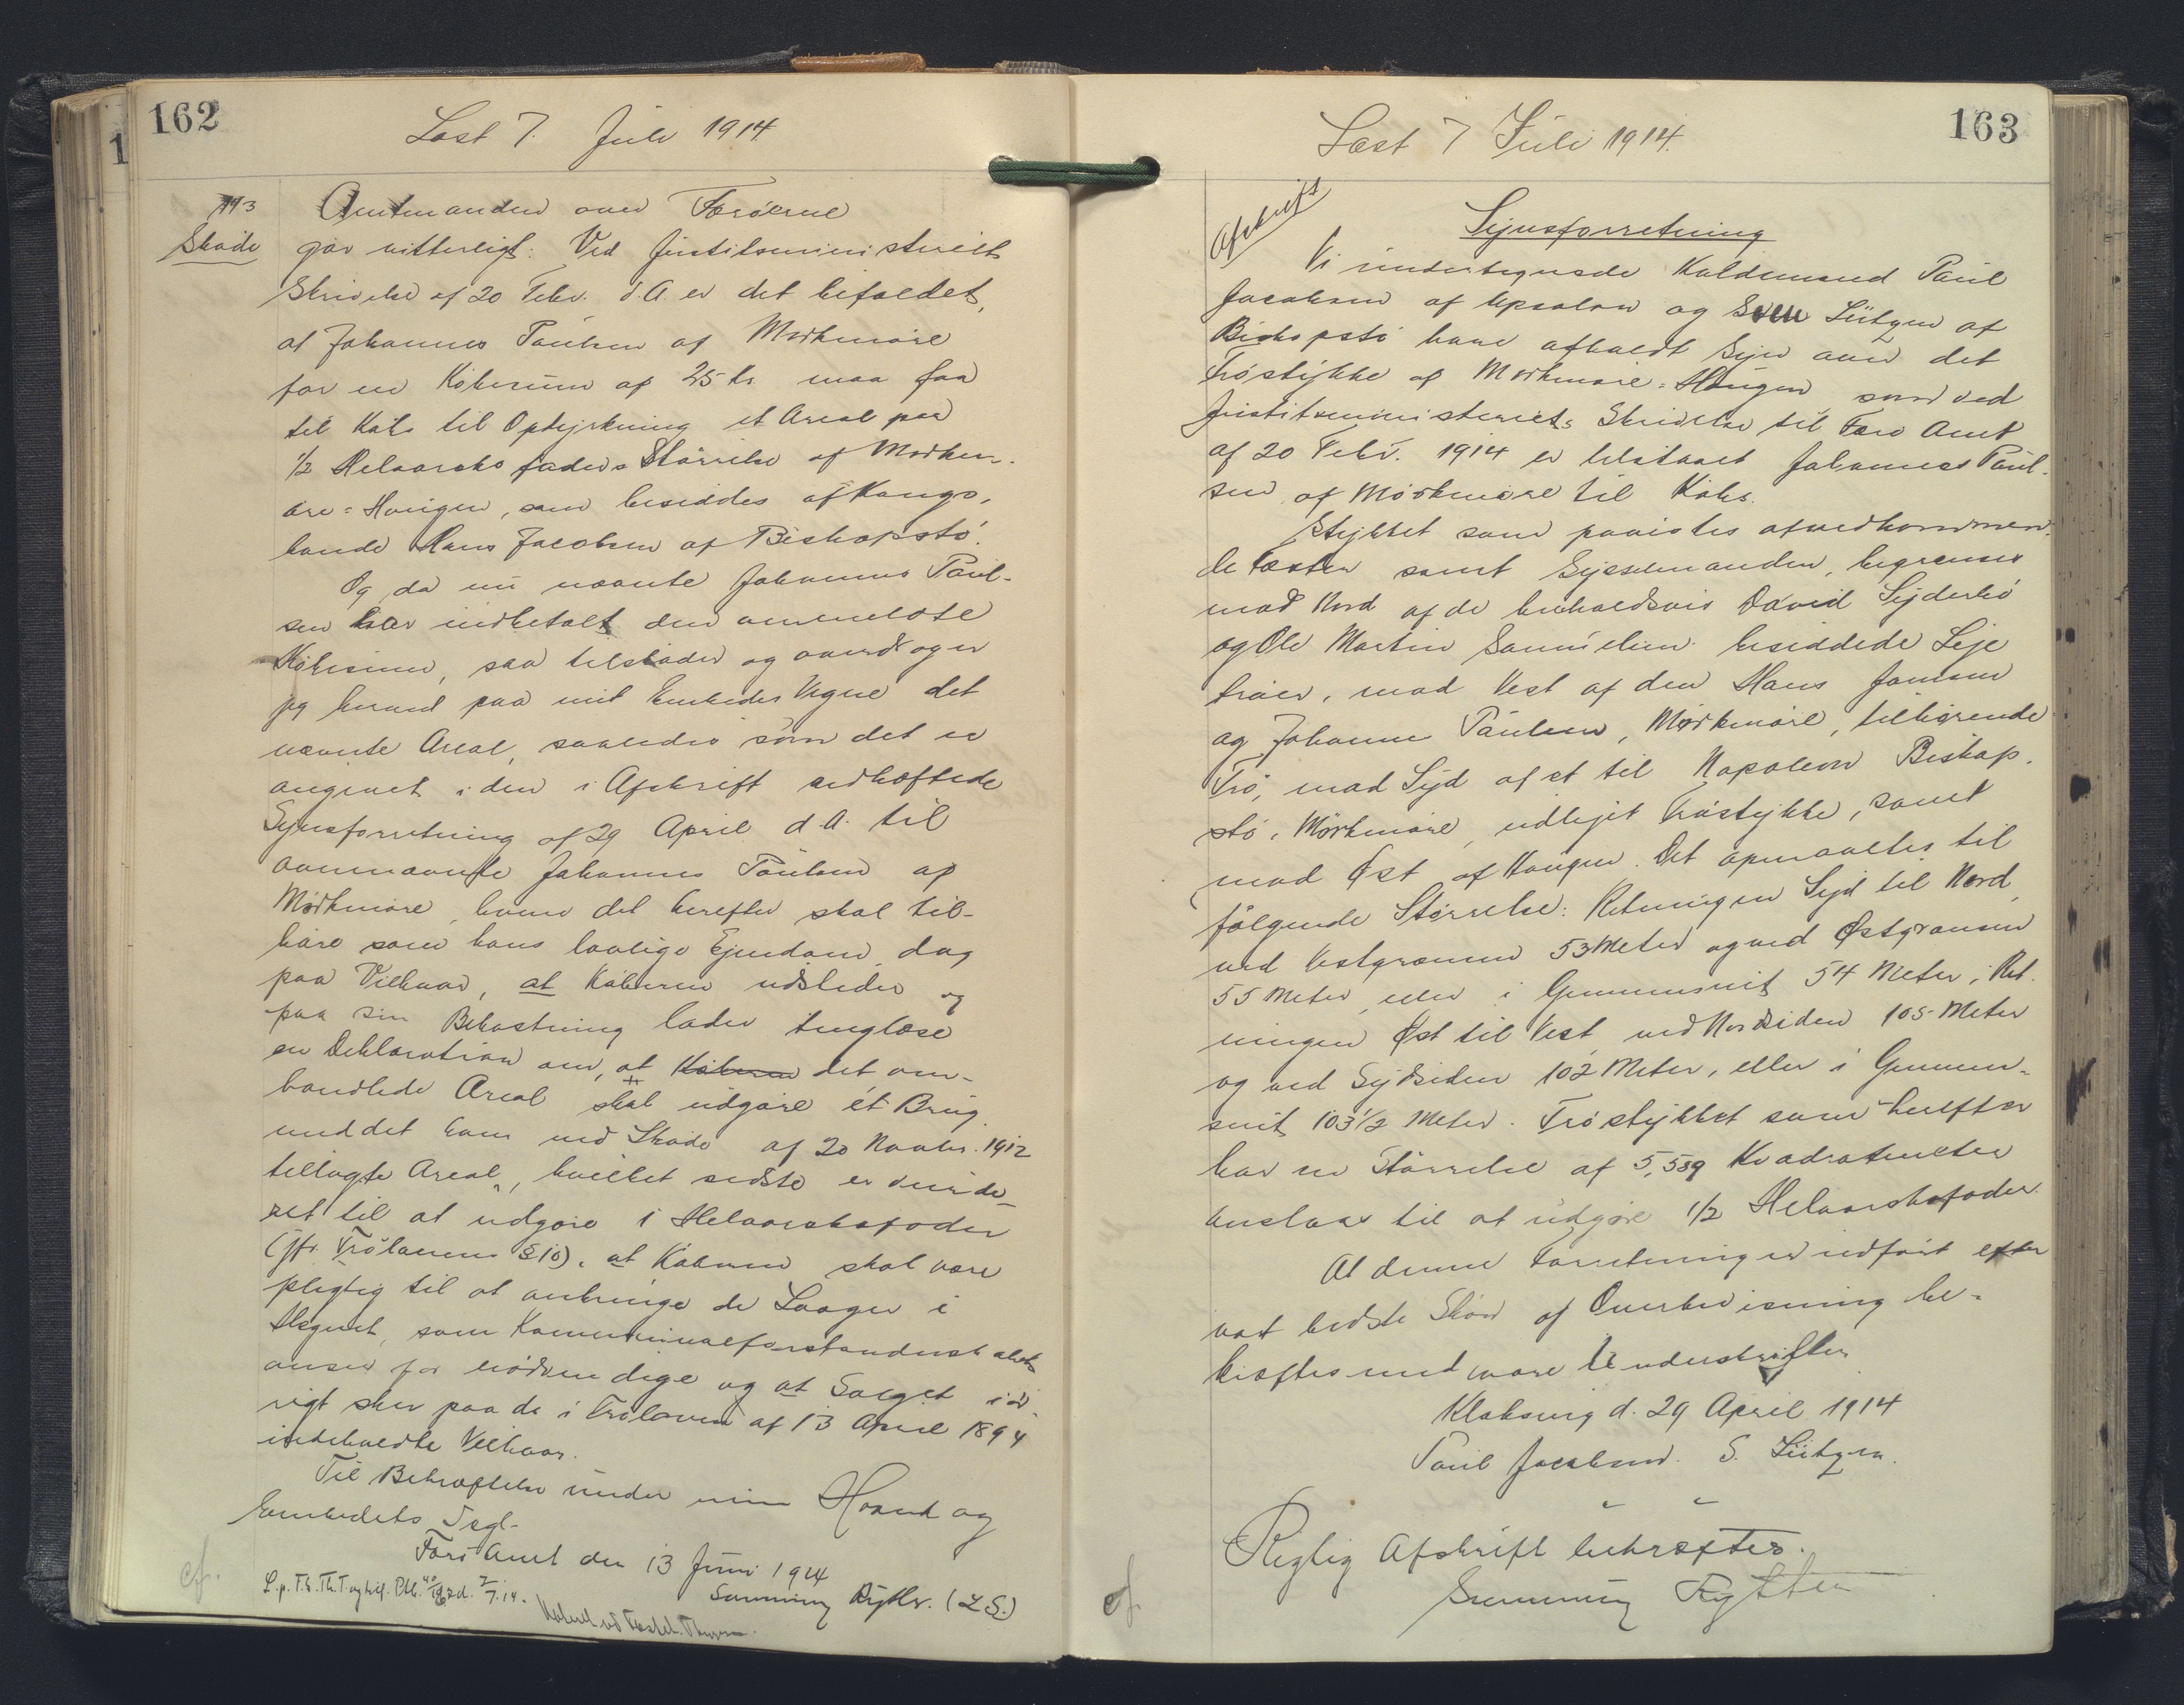 162
Læst 7. Juli 1914
113
Skøde
Amtmanden over Færøerne
gør vitterligt: Ved Justitsministeriets
Skrivelse af 20 Febr. d.A. er det bifaldet,
at Johannes Paulsen af Mørkmøre
for en Købesum af 25 Kr maa faa
til Købs til Opdyrkning et Areal paa
1/2 Helaarsko foders Størrelse af Mørkm-
øre=Haugen, som besiddes af Kongs-
bonde Hans Jacobsen af Biskopstø.
Og da nu nævnte Johannes Paul-
sen har indbetalt den ommeldte
Købesum, saa tilskøder og overdrager
jeg herved paa mit Embedes Vegne det
nævnte Areal, saaledes som det er
angivet i den i Afskrift vedhæftede
Synsforretning af 29 April d.A. til
ovennævnte Johannes Paulsen af
Mørkmøre, hvem det herefter skal til-
høre som hans lovlige Ejendom, dog
paa Vilkaar, at Køberen udsteder og
paa sin Bekostning lader tinglæse
en Deklaration om, at Køberen det om-
handlede Areal skal udgøre ét Brug
med det ham ved Skøde af 20 Novbr. 1912
tillagte Areal, hvilket sidste er vurde-
ret til at udgøre 1 Helaarskofoder
(jfr. Trølovens § 10), at Køberen skal være
pligtig til at anbringe de Laager i
Hegnet, som Kommunalforstanderskabet
anser for nødvendige og at Salget iøv-
rigt sker paa de i Trøloven af 13 April 1894
indeholdte Vilkaar.
Til Bekræftelse under min Haand og
Embedets Segl.
Færø Amt den 13 Juni 1914
Svenning Rytter. (L.S.)
163
Læst 7 Juli 1914.
Afskrift
Synsforretning
Vi undertegnede Kaldsmænd Paul
Jacobsen af Upsalom og Sven Lützen af
Biskopstø have afholdt Syn over det
Trøstykke af Mørkmøre=Haugen, som ved
Justitsministeriets Skrivelse til Færø Amt
af 20 Febr. 1914 er tilstaaet Johannes Paul-
sen af Mørkmøre til Købs.
Stykket som paavistes af vedkommen-
de Fæster samt Sysselmanden, begrænses
mod Nord af de henholdsvis David Syderbø
og Ole Martin Samuelsen besiddede Leje
trøer, mod Vest af den Hans Jensen
og Johanne Paulsen, Mørkmøre, tilhørende
Trø, mod Syd af et til Napoleon Biskop-
stø, Mørkmøre, udlejet Trøstykke, samt
mod Øst af Haugen. Det opmaaltes til
følgende Størrelse: Retningen Syd til Nord,
ved Vestgrænsen 53 Meter og ved Østgrænsen
55 Meter, eller i Gennemsnit 54 Meter; Ret-
ningen Øst til Vest, ved Nordsiden 105 Meter
og ved Sydsiden 102 Meter, eller i Gennem-
snit 103 1/2 Meter. Trøstykket som herefter
har en Størrelse af 5,589 Kvadratmeter
anslaas til at udgøre 1/2 Helaarskofoder.
At denne Forretning er udført efter
vort bedste Skøn og Overbevisning be-
kræftes med vore Underskrifter
Klaksvig d. 29 April 1914
Paul Jacobsen. S. Lützen.
Rigtig Afskrift bekræftes.
Svenning Rytter